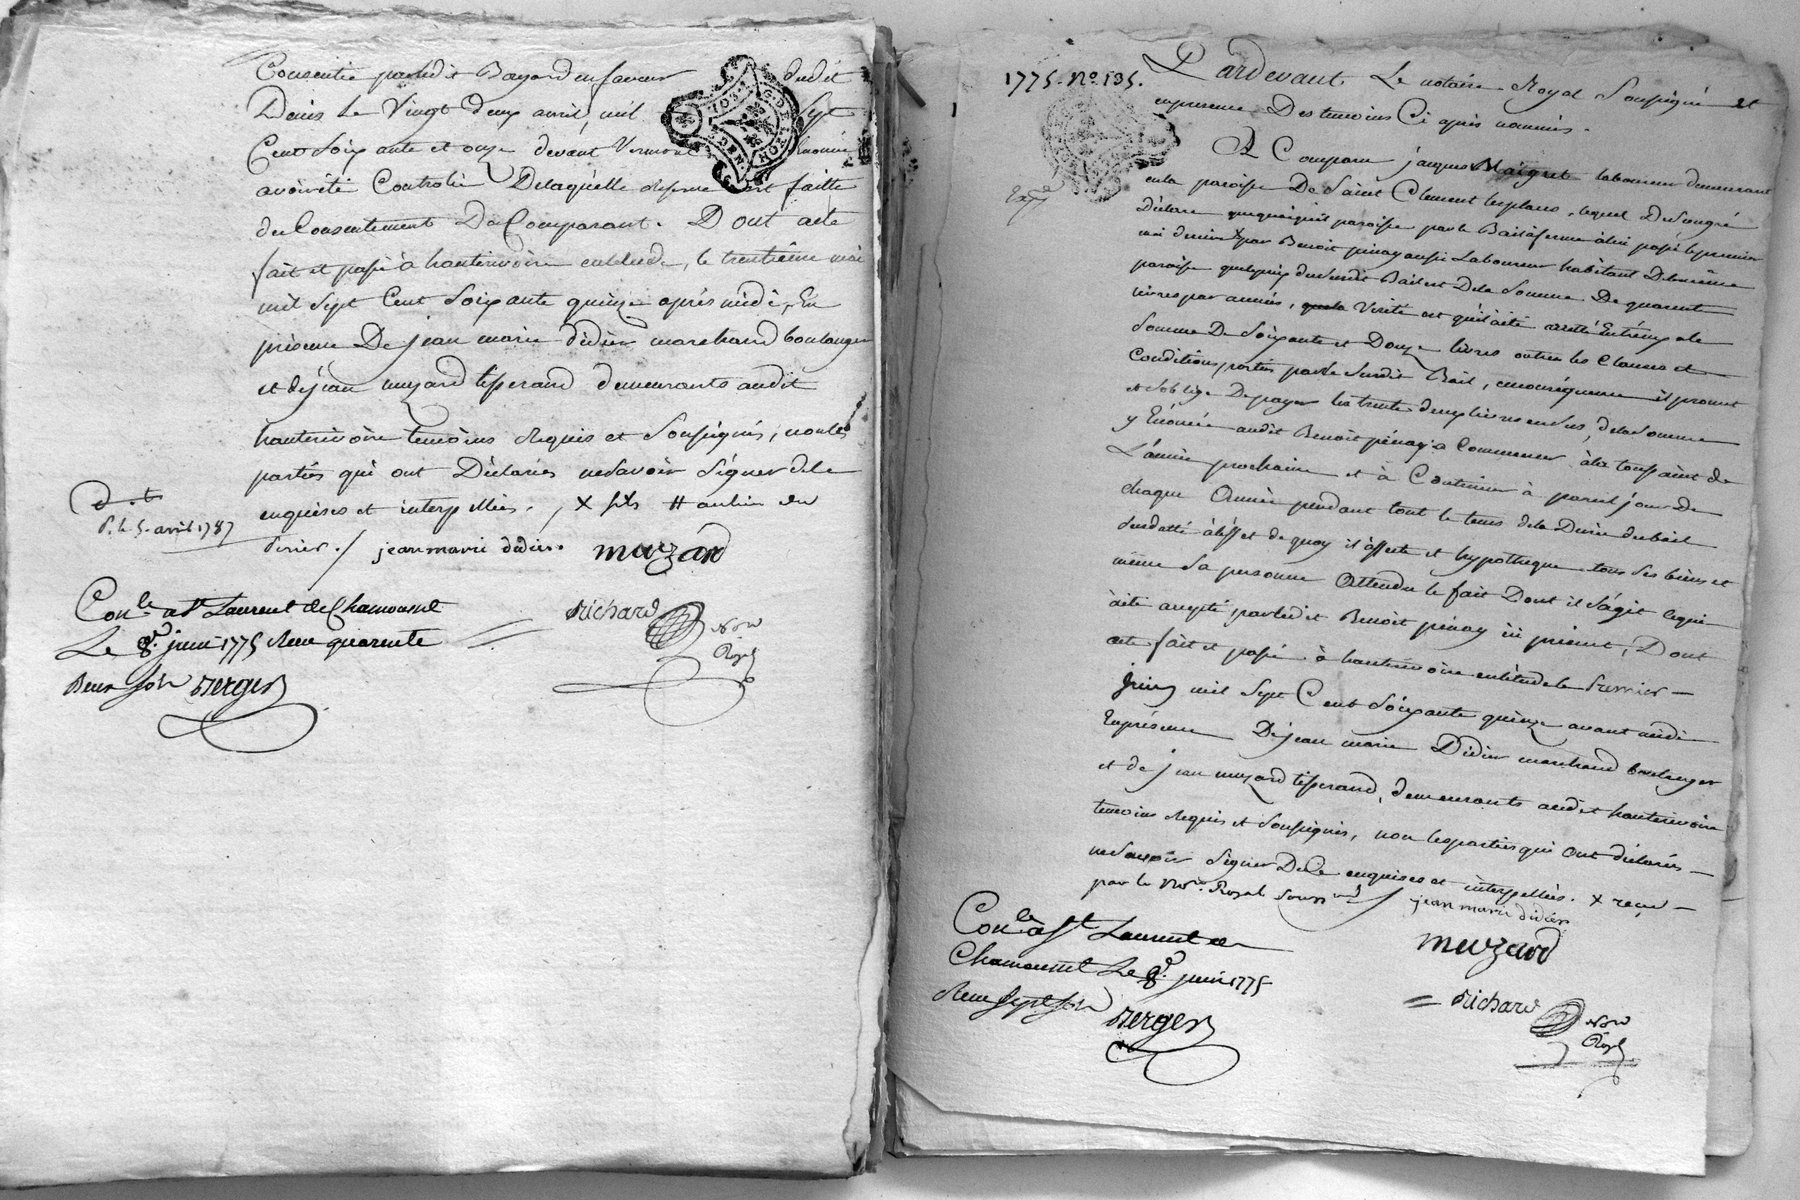 Consentie parledit Bayard en faveur dudit
Denis le Vingt deux avril, mil Sept
Cent Soixante et onze devant Vermont
avoir été Controlé Delaquelle reserve est faitte
du Consentement Du Comparant. Dont acte
fait et passé à hauterivoire en l'etude, le trentième mai
mil Sept Cent Soixante quinze après midi, En
présence De jean marie didier marchand boulanger
et de jean muzard tisserand demeurants audit
hauterivoire temoins requis et Soussignés, non les
parties qui ont Déclarées ne Savoir Signer de le
enquises et interpellées.
jean marie didier. muzard
P. le 5. avril 1787
Con.le a St Laurent de Chamousset
Le 8e. juin 1775 Reçu quarente
Deux sols Berger
Richard
Nore
Royal
1775. No. 135.
Pardevant Le notaire Royal Soussigné et
en presence Des temoins Ci après nommés.
A Comparu jacques Maigret laboureur demeurant
en la paroisse De Saint Clement les places, lequel De Son gré
Déclare que quoiqu'il paroisse par le Bail à ferme à lui passé le premier
mai dernier par Benoit pinay aussi Laboureur habitant De la même
paroisse que le prix du Susdit Bail est De la Somme De quarante
livres par année, la Vérité est qu'il a été arrêté Entr'eux a la
Somme De Soixante et Douze livres outre les Clauses et
Conditions portées par le Susdit Bail, en conséquence il promet
et S'oblige De payer les trente deux livres en Sus, de la Somme
y Enoncée audit Benoit pinay à Commencer à la toussaint de
L'année prochaine et à Continuer à pareil jour De
chaque Année pendant tout le tems de la Durée du bail
Susdatté à l'effet de quoy il affecte et hypotheque tous Ses biens et
même Sa personne Attendu le fait Dont il S'agit ce qui
à été accepté par ledit Benoit pinay ici présent, Dont
acte fait et passé à hauterivoire en l'étude le Premier
juin mil Sept Cent Soixante quinze avant midi
En présence De jean marie Didier marchand boulanger
et de jean muzard tisserand, demeurants audit hauterivoire
temoins requis et Soussignés, non les parties qui ont déclarées
ne Savoir Signer De le enquises et interpellées. x reçu
par le Nore. Royal Soussigné
jean marie didier
muzard
Con.le a St Laurent de
Chamousset Le 8e. juin 1775
Reçu sept sols Berger
Richard
Nore
Royal